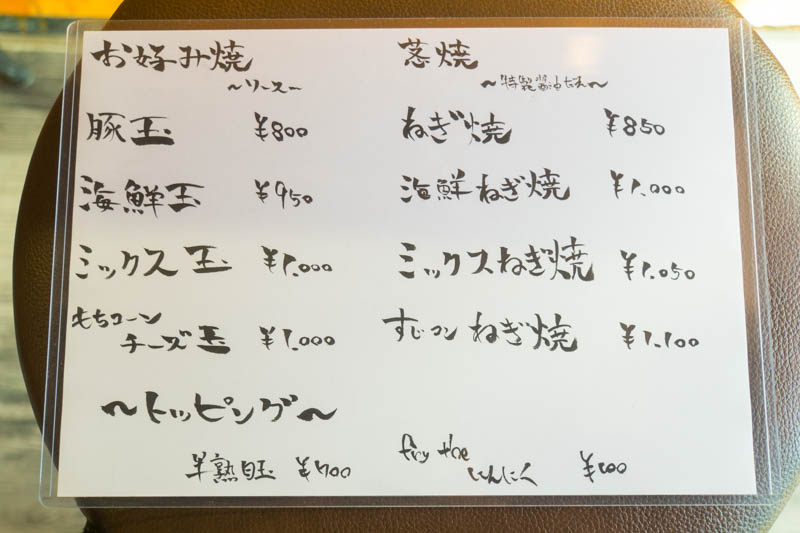 お好み焼
〜ソース〜
豚玉 ¥800
海鮮玉 ¥950
ミックス玉 ¥1.000
もちコーン
チーズ玉 ¥1.000
葱焼
〜特製醤油だれ〜
ねぎ焼 ¥850
海鮮ねぎ焼 ¥1.000
ミックスねぎ焼 ¥1.050
すじコンねぎ焼 ¥1.100
〜トッピング〜
半熟目玉 ¥100
fry the
にんにく ¥100